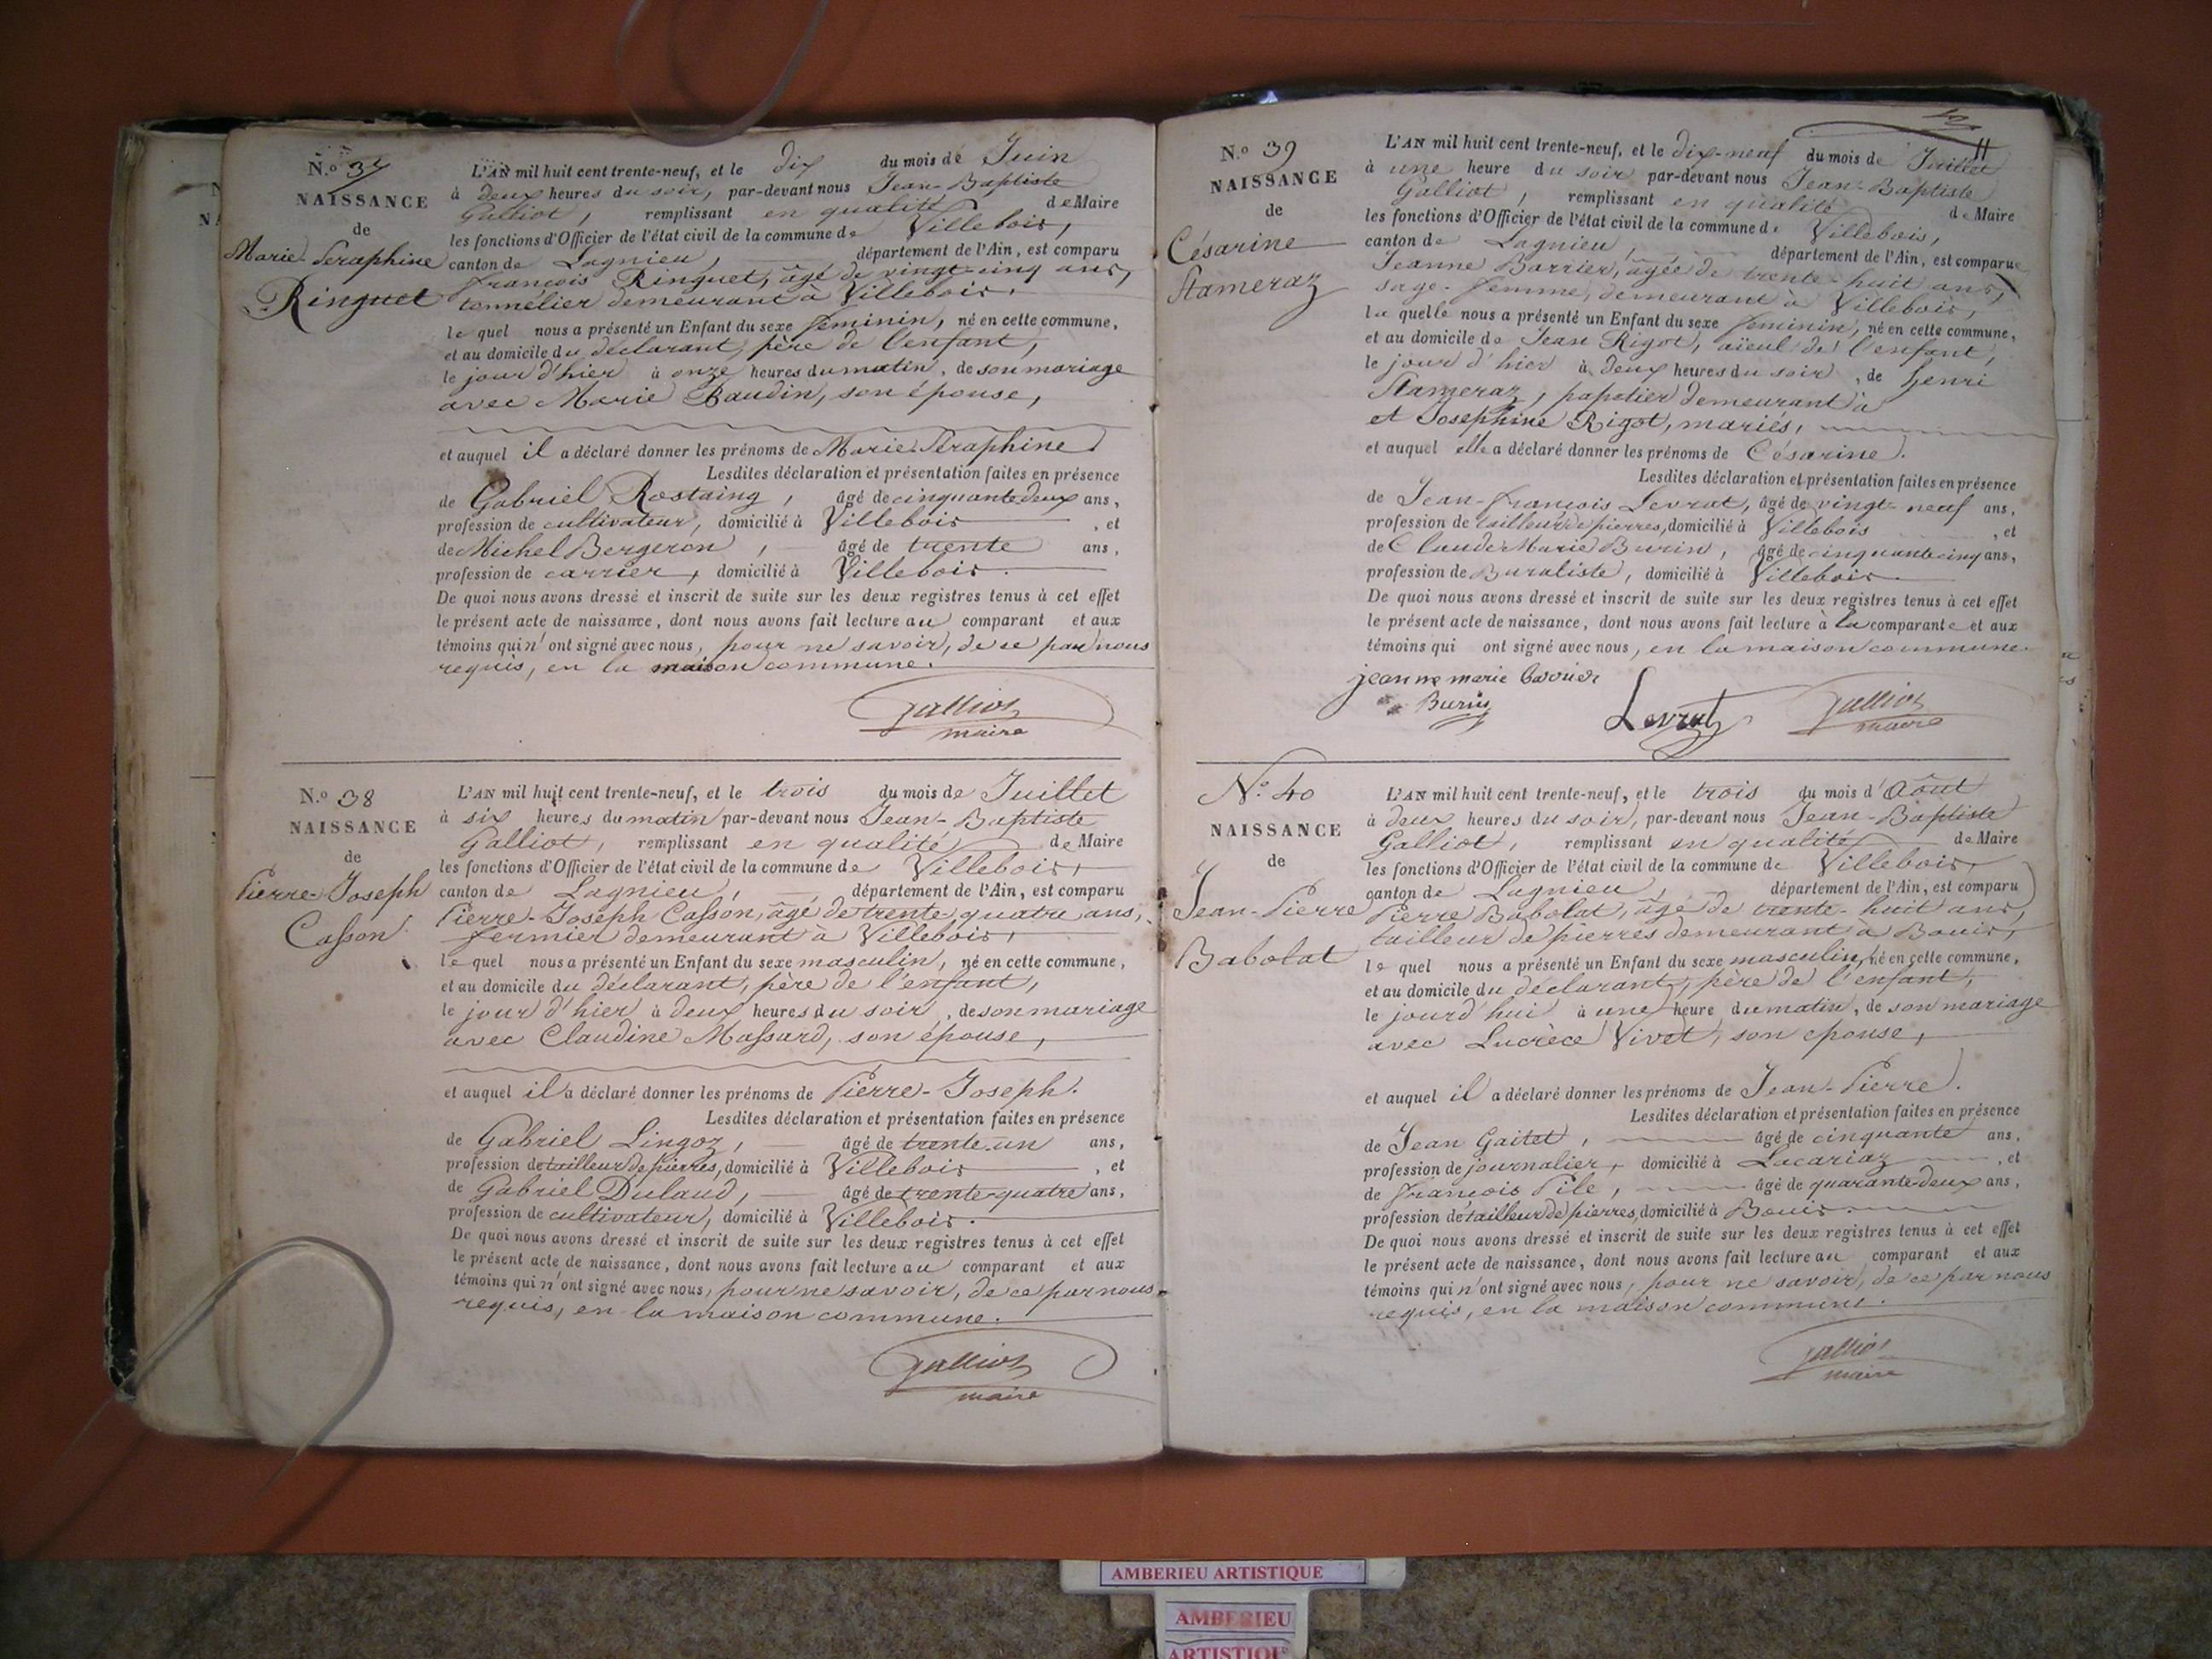 N.o 37
NAISSANCE
de
Marie-Séraphine
Ringuet
L'AN mil huit cent trente-neuf, et le dix du mois de Juin
à deux heures du soir, par-devant nous Jean-Baptiste
Galliot, remplissant en qualité de Maire
les fonctions d'Officier de l'état civil de la commune de Villebois,
canton de Lagnieu, département de l'Ain, est comparu
françois Ringuet, âgé de vingt-cinq ans,
tonnelier demeurant à Villebois,
lequel nous a présenté un Enfant du sexe féminin, né en cette commune,
et au domicile du déclarant, père de l'enfant,
le jour d'hier à onze heures du matin, de son mariage
avec Marie Baudin, son épouse,
et auquel il a déclaré donner les prénoms de Marie Séraphine
Lesdites déclaration et présentation faites en présence
de Gabriel Rostaing, âgé de cinquante-deux ans,
profession de cultivateur, domicilié à Villebois, et
de Michel Bergeron, âgé de trente ans,
profession de carrier, domicilié à Villebois.
De quoi nous avons dressé et inscrit de suite sur les deux registres tenus à cet effet
le présent acte de naissance, dont nous avons fait lecture au comparant et aux
témoins qui n'ont signé avec nous, pour ne savoir, de ce par nous
requis, en la maison commune.
Galliot
maire
N.o 38
NAISSANCE
de
Pierre-Joseph
Casson
L'AN mil huit cent trente-neuf, et le trois du mois de Juillet
à six heures du matin par-devant nous Jean-Baptiste
Galliot, remplissant en qualité de Maire
les fonctions d'Officier de l'état civil de la commune de Villebois,
canton de Lagnieu, département de l'Ain, est comparu
Pierre-Joseph Casson, âgé de trente quatre ans,
fermier demeurant à Villebois,
lequel nous a présenté un Enfant du sexe masculin, né en cette commune,
et au domicile du déclarant, père de l'enfant,
le jour d'hier à deux heures du soir, de son mariage
avec Claudine Massard, son épouse,
et auquel il a déclaré donner les prénoms de Pierre-Joseph.
Lesdites déclaration et présentation faites en présence
de Gabriel Lingoz, âgé de trente-un ans,
profession de tailleur de pierres, domicilié à Villebois, et
de Gabriel Dulaud, âgé de trente-quatre ans,
profession de cultivateur, domicilié à Villebois.
De quoi nous avons dressé et inscrit de suite sur les deux registres tenus à cet effet
le présent acte de naissance, dont nous avons fait lecture au comparant et aux
témoins qui n'ont signé avec nous, pour ne savoir, de ce par nous
requis, en la maison commune.
Galliot
maire
N.o 39
NAISSANCE
de
Césarine
Stameraz
L'AN mil huit cent trente-neuf, et le dix-neuf du mois de Juillet
à une heure du soir par-devant nous Jean-Baptiste
Galliot, remplissant en qualité de Maire
les fonctions d'Officier de l'état civil de la commune de Villebois,
canton de Lagnieu, département de l'Ain, est comparue
Jeanne Barrier, âgée de trente-huit ans,
sage-femme, demeurant à Villebois,
laquelle nous a présenté un Enfant du sexe féminin, né en cette commune,
et au domicile de Jean Rigot, aïeul de l'enfant,
le jour d'hier à deux heures du soir, de henri
Stameraz, papetier demeurant à
et Josephine Rigot, mariés,
et auquel elle a déclaré donner les prénoms de Césarine.
Lesdites déclaration et présentation faites en présence
de Jean-françois Levrat, âgé de vingt-neuf ans,
profession de tailleur de pierres, domicilié à Villebois, et
de Claude Marie Burin, âgé de cinquante cinq ans,
profession de Buraliste, domicilié à Villebois.
De quoi nous avons dressé et inscrit de suite sur les deux registres tenus à cet effet
le présent acte de naissance, dont nous avons fait lecture à la comparante et aux
témoins qui ont signé avec nous, en la maison commune.
jeanne marie barrier
Burin Levrat Galliot
maire
N.o 40
NAISSANCE
de
Jean-Pierre
Babolat
L'AN mil huit cent trente-neuf, et le trois du mois d'Août
à deux heures du soir, par-devant nous Jean-Baptiste
Galliot, remplissant en qualité de Maire
les fonctions d'Officier de l'état civil de la commune de Villebois,
canton de Lagnieu, département de l'Ain, est comparu
Pierre Babolat, âgé de trente-huit ans,
tailleur de pierres demeurant à Bouis,
lequel nous a présenté un Enfant du sexe masculin, né en cette commune,
et au domicile du déclarant, père de l'enfant,
le jourd'hui à une heure du matin, de son mariage
avec Lucrèce Vivet, son epouse,
et auquel il a déclaré donner les prénoms de Jean-Pierre.
Lesdites déclaration et présentation faites en présence
de Jean Gaitet, âgé de cinquante ans,
profession de journalier, domicilié à Lacariaz, et
de françois Pile, âgé de quarante-deux ans,
profession de tailleur de pierres, domicilié à Bouis.
De quoi nous avons dressé et inscrit de suite sur les deux registres tenus à cet effet
le présent acte de naissance, dont nous avons fait lecture au comparant et aux
témoins qui n'ont signé avec nous, pour ne savoir, de ce par nous
requis, en la maison commune.
Galliot
maire
AMBERIEU ARTISTIQUE
AMBERIEU
ARTISTIQUE